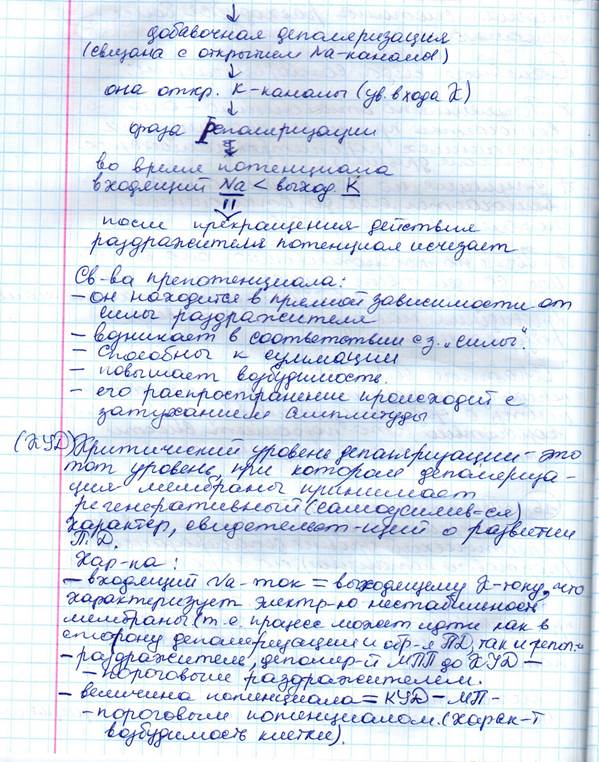 добавочная деполяризация
(связана с открытием Na-каналов)
она откр. К-каналы (ув. входа К)
фаза реполяризации
во время потенциала
входящий Na < выход K
после прекращения действия
раздражителя потенциал исчезает
Св-ва препотенциала:
- он находится в прямой зависимости от
силы раздражителя
- возникает в соответствии с з. "силы".
- способны к суммации
- повышает возбудимость.
- его распространение происходит с
затуханием амплитуды
(КУД) Критический уровень деполяризации - это
тот уровень, при котором деполяриза-
ция мембраны принимает
регенеративный (самоусилив-ся)
характер, свидетельст-щий о развитии
П.Д.
Хар-ка:
- входящий Na-ток = выходящему К-току, что
характеризует электр-ю нестабильность
мембраны (т.е. процесс может идти как в
сторону деполяризации и обр-я ПД, так и репол.-
- раздражитель, деполяр-й МПП до КУД -
- пороговым раздражителем.
- величина потенциала = КУД - МП -
- пороговым потенциалом. (Харак-т
возбудимость клетки).